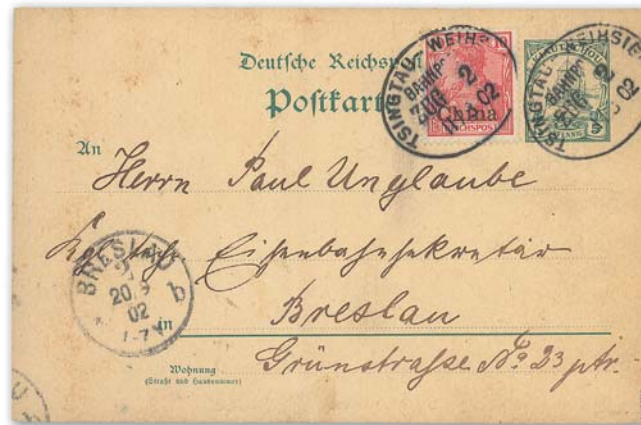 Deutsche Reichspost
Postkarte
TSINGTAU WEIHSIE
BAHNPO
ZUG 2
02
10
China
REICHSPOST
TSINGTAU WEIHSIE
BAHNP
ZUG 2
02
KIAUTSCHOU
5
An
Herrn Paul Unglaube
Eisenbahnsekretär
BRESLAU
20.
02
b
in Breslau
Wohnung
(Straße und Hausnummer)
Grünstraße No. 23 ptr.